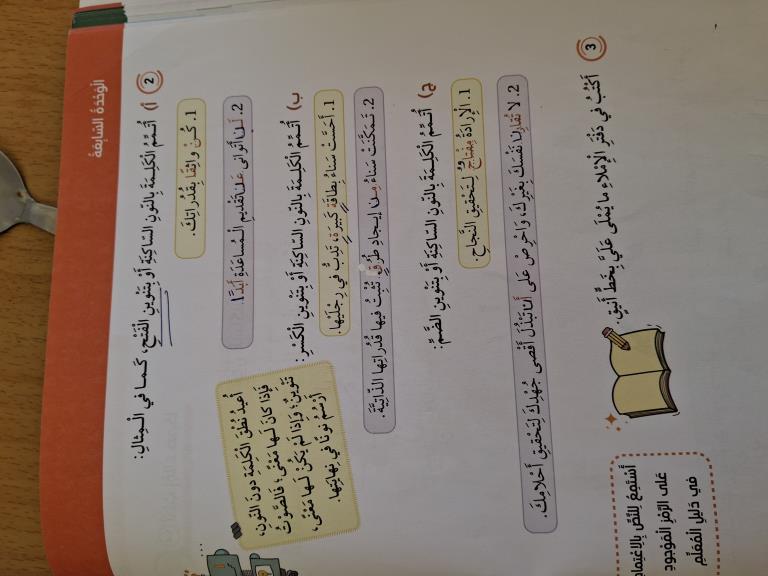 الْوَحْدَةُ السّابِعَةُ
2
أ) أُتَمِّمُ الْكَلِمَةَ بِالنّونِ السّاكِنَةِ أَوْ بِتَنْوينِ الْفَتْحِ، كَـمـا في الْـمِثالِ:
1. كُـنْ واثِقًا بِقُدُراتِكَ.
2. لَـنْ أَتَوانى عَـنْ تَقْديمِ الْـمُساعَدَةِ أَبَدًا.
أُعيدُ نُطْقَ الْكَلِمَةِ دونَ النّونِ،
فَإِذا كانَ لَـها مَعْنًى؛ فَالصَّوْتُ
تَنْوينٌ؛ وَإِذا لَمْ يَكُنْ لَـها مَعْنًى،
أَرْسُمُ نونًا في نِهايَتِها.
ب) أُتَمِّمُ الْكَلِمَةَ بِالنّونِ السّاكِنَةِ أَوْ بِتَنْوينِ الْكَسْرِ:
1. أَحَسَّتْ سَناءُ بِطاقَةٍ كَبيرَةٍ، تَدِبُّ في رِجْلَيْها.
2. تَـمَكَّنَتْ سَناءُ مِـنْ إيـجادِ طُرُقٍ تُثْبِتُ فيها قُدُراتِها الذّاتِيَّةَ.
ج) أُتَمِّمُ الْكَلِمَةَ بِالنّونِ السّاكِنَةِ أَوْ بِتَنْوينِ الضَّمِّ:
1. الْإِرادَةُ مِفْتاحٌ لِتَحْقيقِ النَّجاحِ.
2. لا تُقارِنْ نَفْسَكَ بِغَيْرِكَ، وَاحْرِصْ عَلى أَنْ تَبْذُلَ أَقْصى جُهْدِكَ لِتَحْقيقِ أَحْلامِكَ.
3
أَكْتُبُ في دَفْتَرِ الْإِمْلاءِ ما يُمْلى عَلَيَّ بِخَطٍّ أَنيقٍ.
أَسْتَمِعُ لِلنَّصِّ بِالِاعْتِمادِ
عَلى الرَّمْزِ الْمَوْجودِ
في دَليلِ الْمُعَلِّمِ